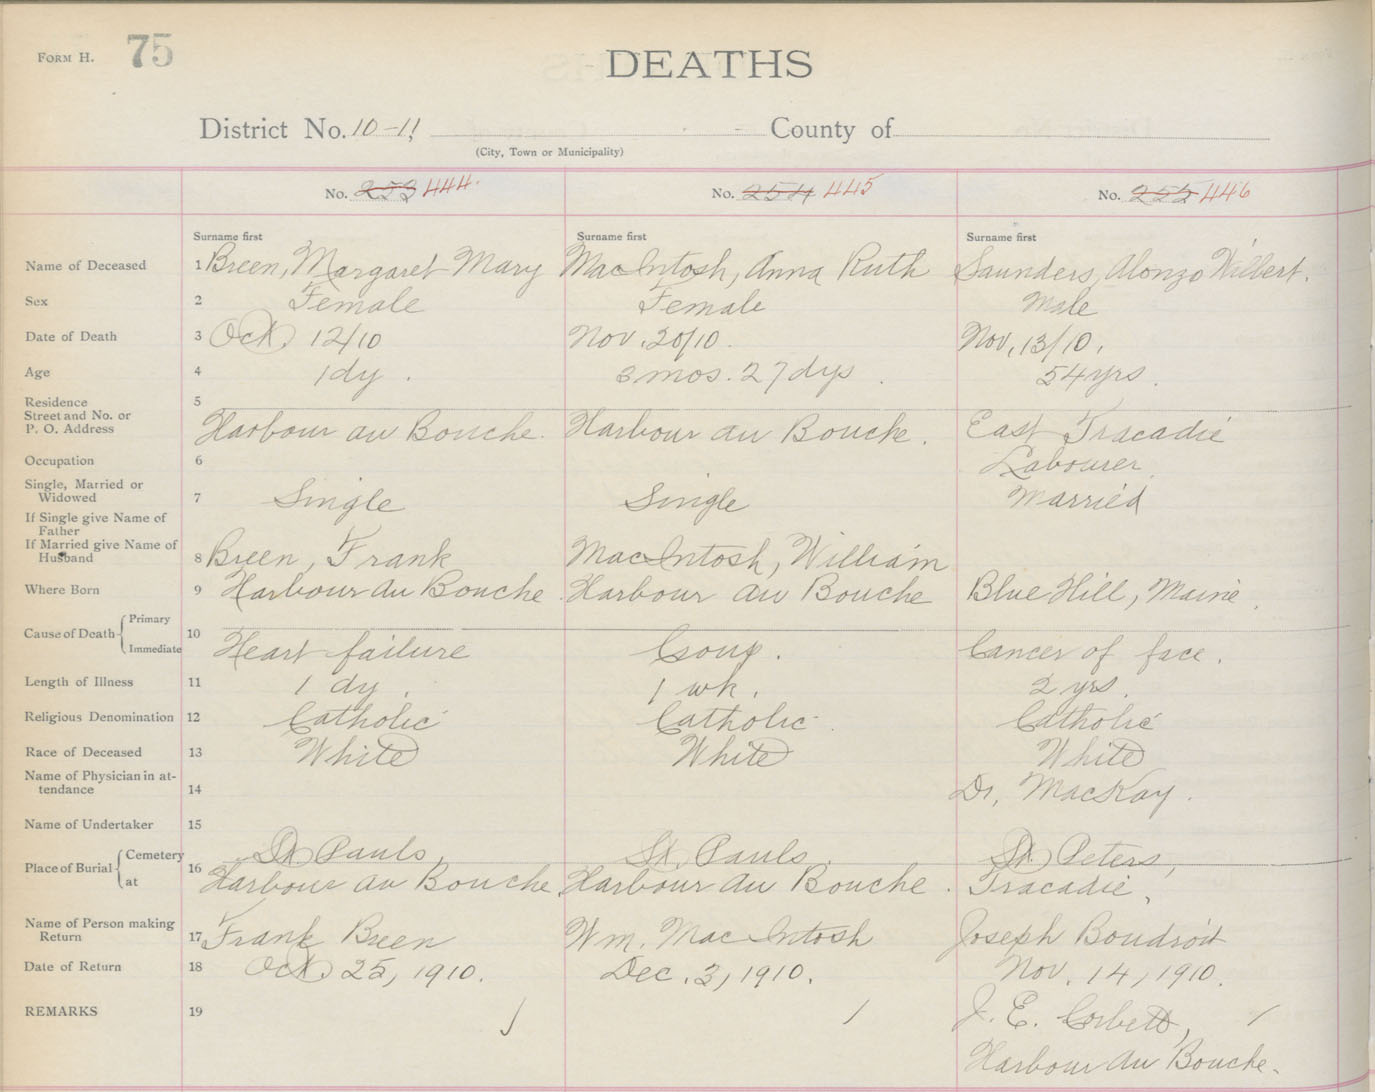 FORM H. 75
DEATHS
District No. 10-11 County of
(City, Town or Municipality)
No. 253 444. No. 254 445 No. 255 446
Surname first Surname first Surname first
Name of Deceased 1 Breen, Margaret Mary MacIntosh, Anna Ruth Saunders, Alonzo Wilbert.
Sex 2 Female Female Male
Date of Death 3 Oct. 12/10 Nov. 20/10. Nov. 13/10.
Age 4 1 dy. 3 mos. 27 dys. 54 yrs.
Residence 5
Street and No. or
P. O. Address Harbour au Bouche. Harbour au Bouche. East Tracadie
Occupation 6 Labourer
Single, Married or
Widowed 7 Single Single Married
If Single give Name of
Father
If Married give Name of
Husband 8 Breen, Frank MacIntosh, William
Where Born 9 Harbour au Bouche Harbour au Bouche Blue Hill, Maine.
Cause of Death Primary
Immediate 10 Heart failure Croup. Cancer of face.
Length of Illness 11 1 dy. 1 wk. 2 yrs.
Religious Denomination 12 Catholic Catholic Catholic
Race of Deceased 13 White White White
Name of Physician in at-
tendance 14 Dr. MacKay.
Name of Undertaker 15
Place of Burial Cemetery 16 St. Pauls, St. Pauls. St. Peters,
at Harbour au Bouche. Harbour au Bouche. Tracadie.
Name of Person making
Return 17 Frank Breen Wm. MacIntosh Joseph Boudroit
Date of Return 18 Oct. 25, 1910. Dec. 3, 1910. Nov. 14, 1910.
REMARKS 19 J. E. Corbett,
Harbour au Bouche.